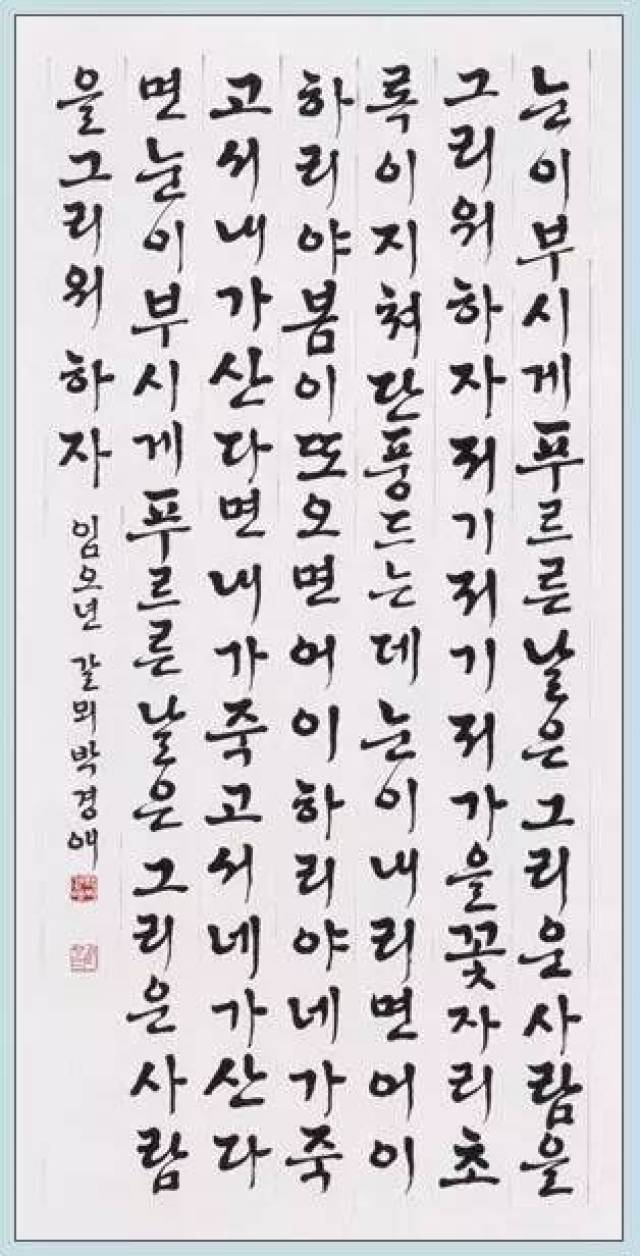 눈이부시게푸르른날은그리운사람을
그리워하자저기저기저가을꽃자리초
록이지쳐단풍드는데눈이내리면어이
하리야봄이또오면어이하리야네가죽
고서내가산다면내가죽고서네가산다
면눈이부시게푸르른날은그리운사람
을그리워하자 임오년 갈뫼박경애